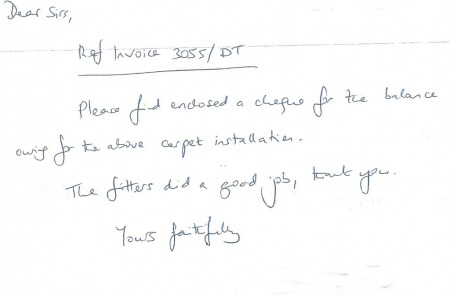 Dear Sirs,
Ref Invoice 3055/DT
Please find enclosed a cheque for the balance
owing for the above carpet installation.
The fitters did a good job, thank you.
Yours faithfully